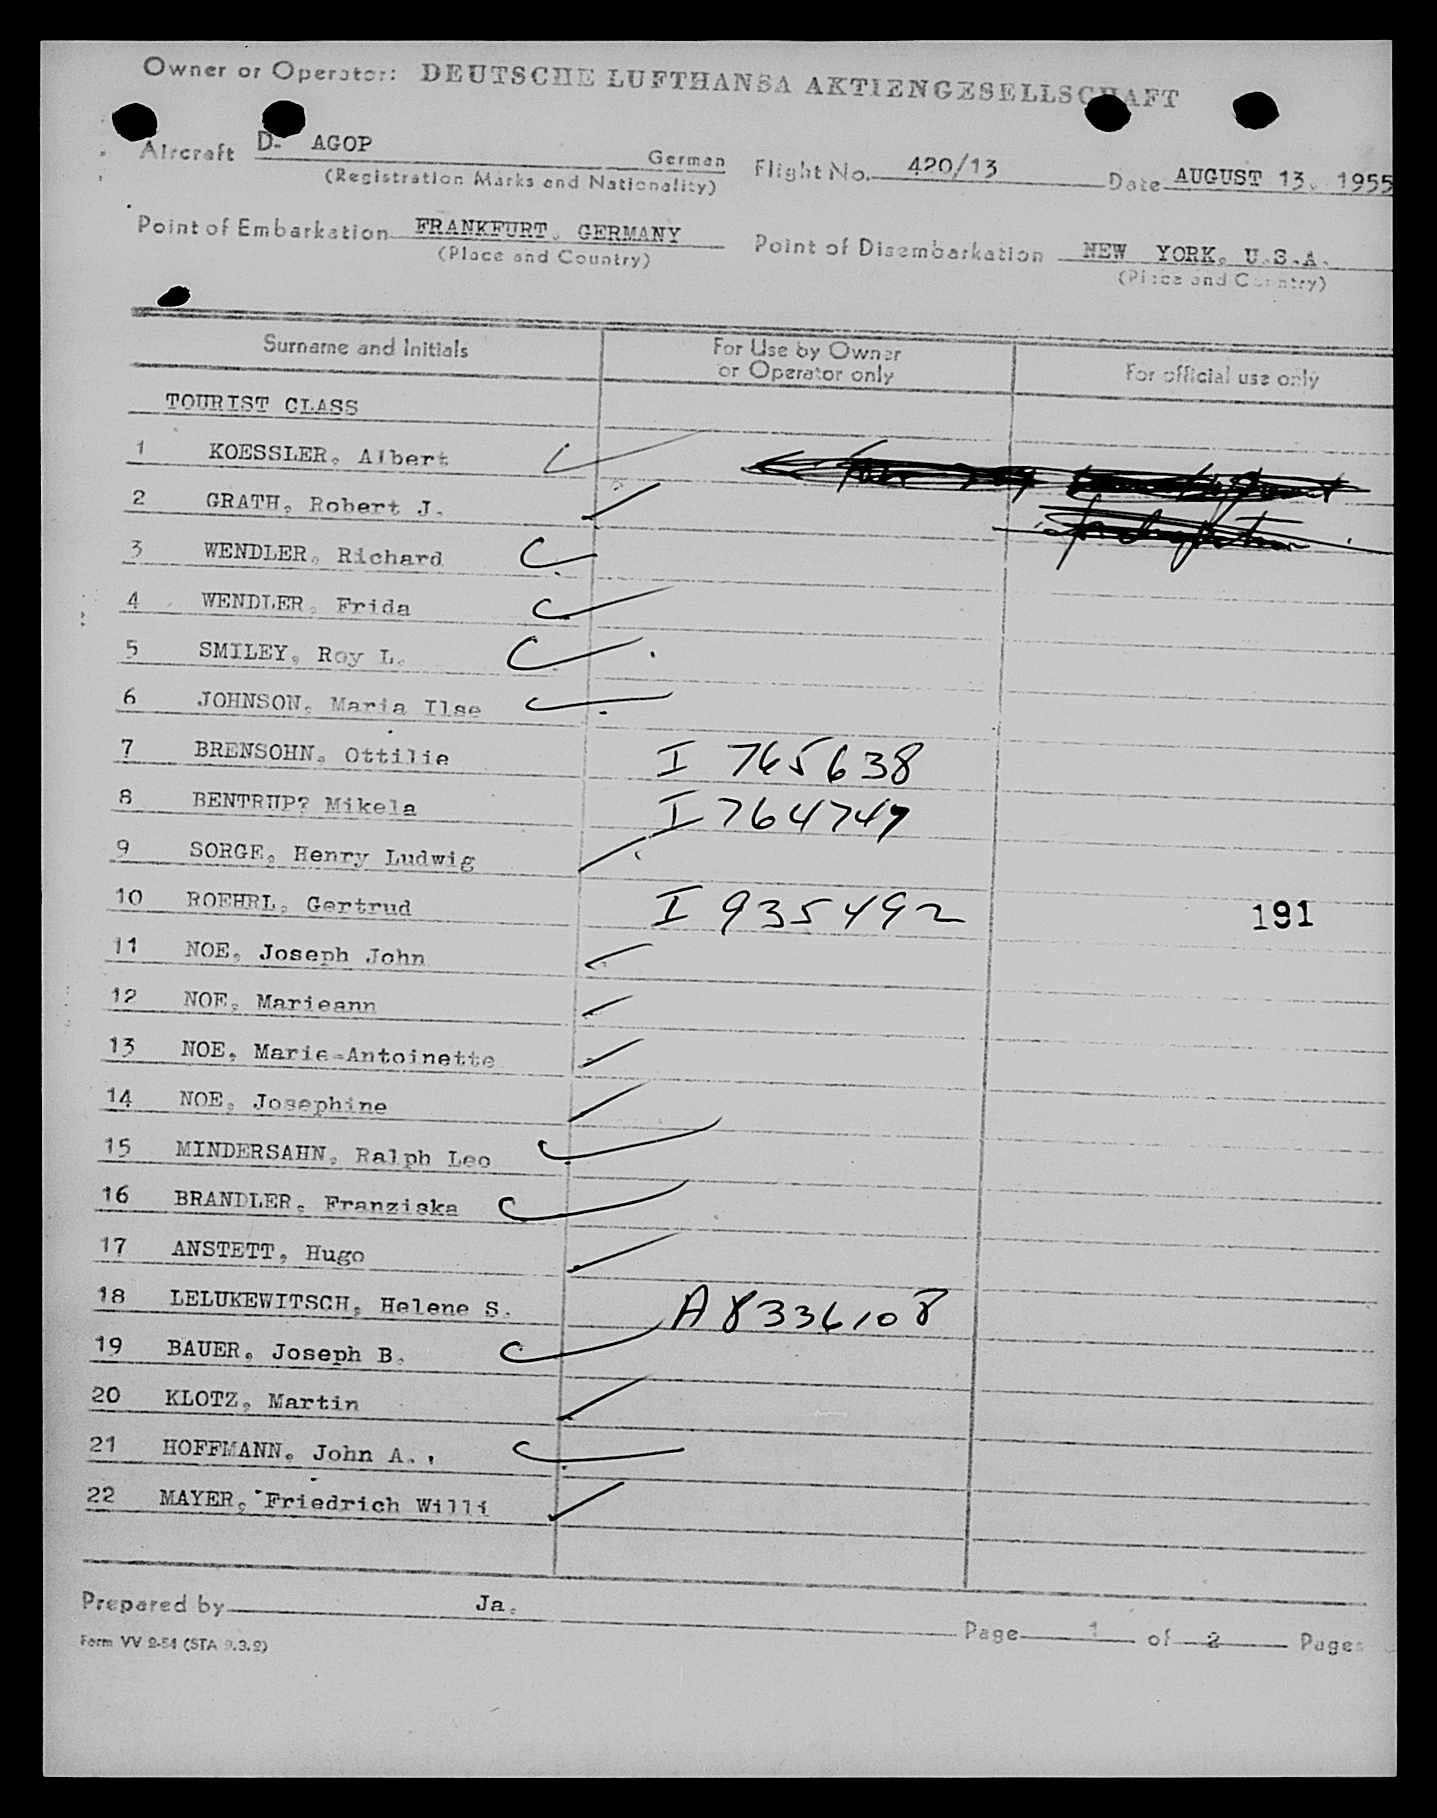 Owner or Operator: DEUTSCHE LUFTHANSA AKTIENGESELLSCHAFT
Aircraft D- AGOP German Flight No. 420/13 Date AUGUST 13, 1955
(Registration Marks and Nationality)
Point of Embarkation FRANKFURT, GERMANY Point of Disembarkation NEW YORK, U.S.A.
(Place and Country) (Place and Country)
Surname and Initials For Use by Owner or Operator only For official use only
TOURIST CLASS
1 KOESSLER, Albert
2 GRATH, Robert J.
3 WENDLER, Richard
4 WENDLER, Frida
5 SMILEY, Roy L.
6 JOHNSON, Maria Ilse
7 BRENSOHN, Ottilie I 765638
8 BENTRUP? Mikela I 764747
9 SORGE, Henry Ludwig
10 ROEHRL, Gertrud I 935492 191
11 NOE, Joseph John
12 NOE, Marieann
13 NOE, Marie-Antoinette
14 NOE, Josephine
15 MINDERSAHN, Ralph Leo
16 BRANDLER, Franziska
17 ANSTETT, Hugo
18 LELUKEWITSCH, Helene S. A8336108
19 BAUER, Joseph B.
20 KLOTZ, Martin
21 HOFFMANN, John A.,
22 MAYER, Friedrich Willi
Prepared by Ja.
Page 1 of 2 Pages
Form VV 2-54 (STA 9.3.2)